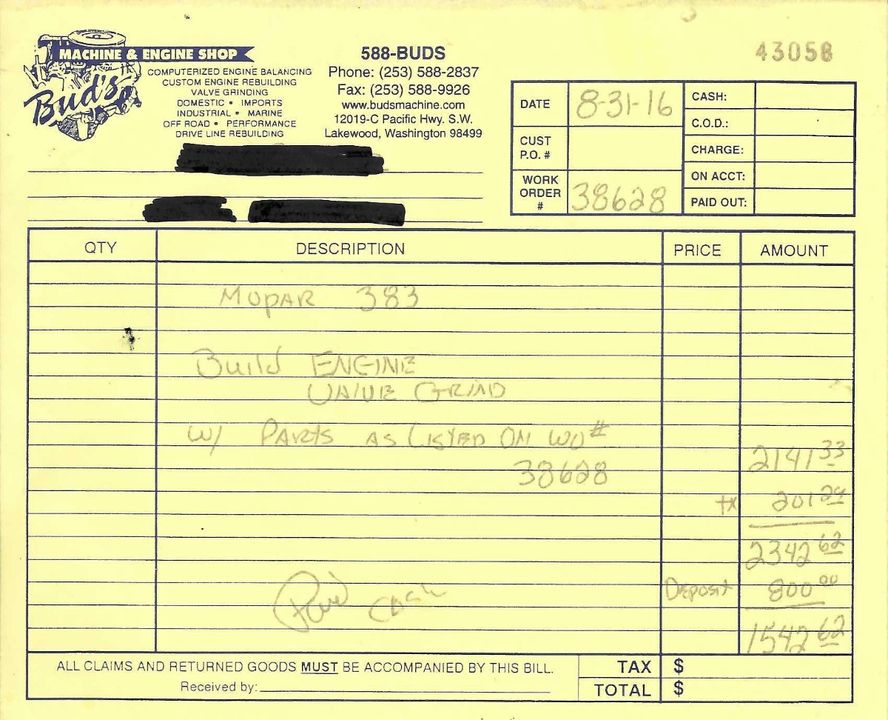 MACHINE & ENGINE SHOP
Bud's
COMPUTERIZED ENGINE BALANCING
CUSTOM ENGINE REBUILDING
VALVE GRINDING
DOMESTIC • IMPORTS
INDUSTRIAL • MARINE
OFF ROAD • PERFORMANCE
DRIVE LINE REBUILDING
588-BUDS
Phone: (253) 588-2837
Fax: (253) 588-9926
www.budsmachine.com
12019-C Pacific Hwy. S.W.
Lakewood, Washington 98499
43058
DATE 8-31-16
CUST P.O. #
WORK ORDER # 38628
CASH:
C.O.D.:
CHARGE:
ON ACCT:
PAID OUT:
QTY DESCRIPTION PRICE AMOUNT
MOPAR 383
Build ENGINE
VALVE GRIND
W/ PARTS AS LISTED ON WO#
38628 2141 33
tx 201 29
2342 62
Deposit 800 00
Paid Cash
1542 62
ALL CLAIMS AND RETURNED GOODS MUST BE ACCOMPANIED BY THIS BILL.
Received by:
TAX $
TOTAL $